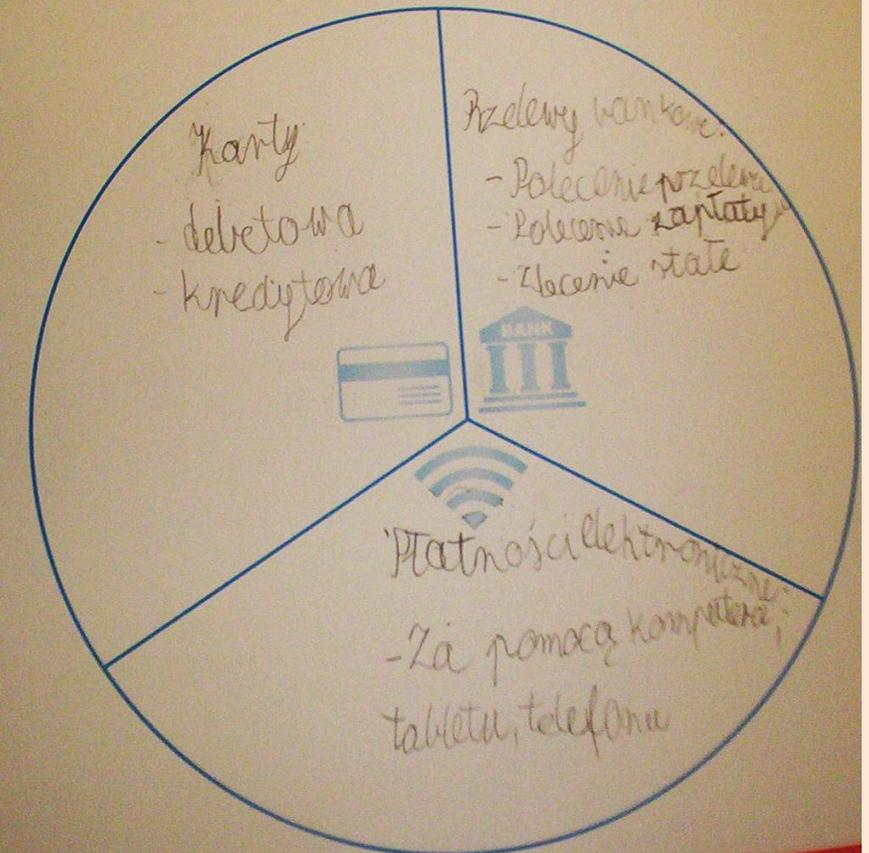 Karty
- debetowa
- kredytowa
Przelewy bankowe:
- Polecenie przelewu
- Polecenie zapłaty
- Zlecenie stałe
BANK
Płatności elektroniczne:
- Za pomocą komputera,
tabletu, telefonu